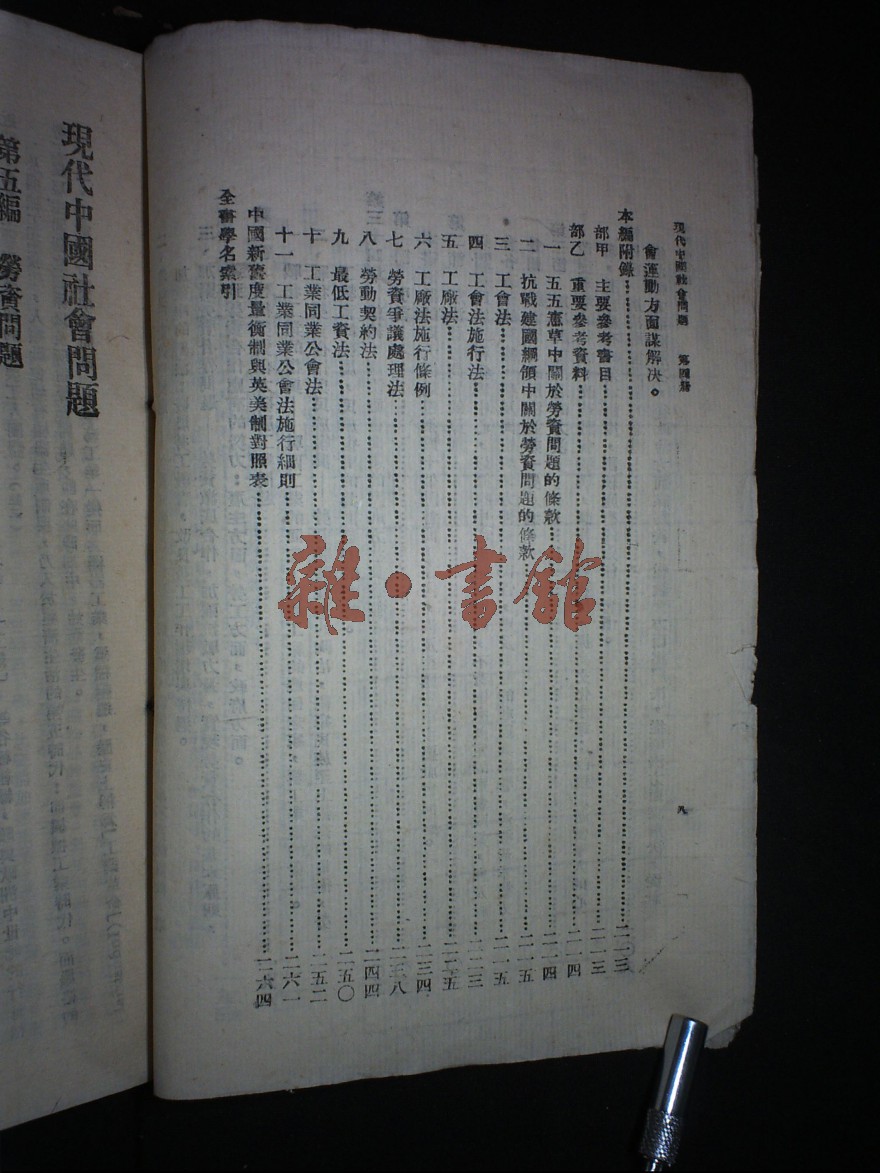 現代中國社會問題 第四册
八
會運動方面謀解決。
本編附錄……二一三
部甲 主要參考書目……二一三
部乙 重要參考資料……二一四
一 五五憲草中關於勞資問題的條款……二一四
二 抗戰建國綱領中關於勞資問題的條款……二一五
三 工會法……二一五
四 工會法施行法……二二三
五 工廠法……二二五
六 工廠法施行條例……二三四
七 勞資爭議處理法……二三八
八 勞動契約法……二四四
九 最低工資法……二五〇
十 工業同業公會法……二五二
十一 工業同業公會法施行細則……二六一
中國新舊度量衡制與英美制對照表……二六四
全書學名索引
現代中國社會問題
第五編 勞資問題
雜·書館